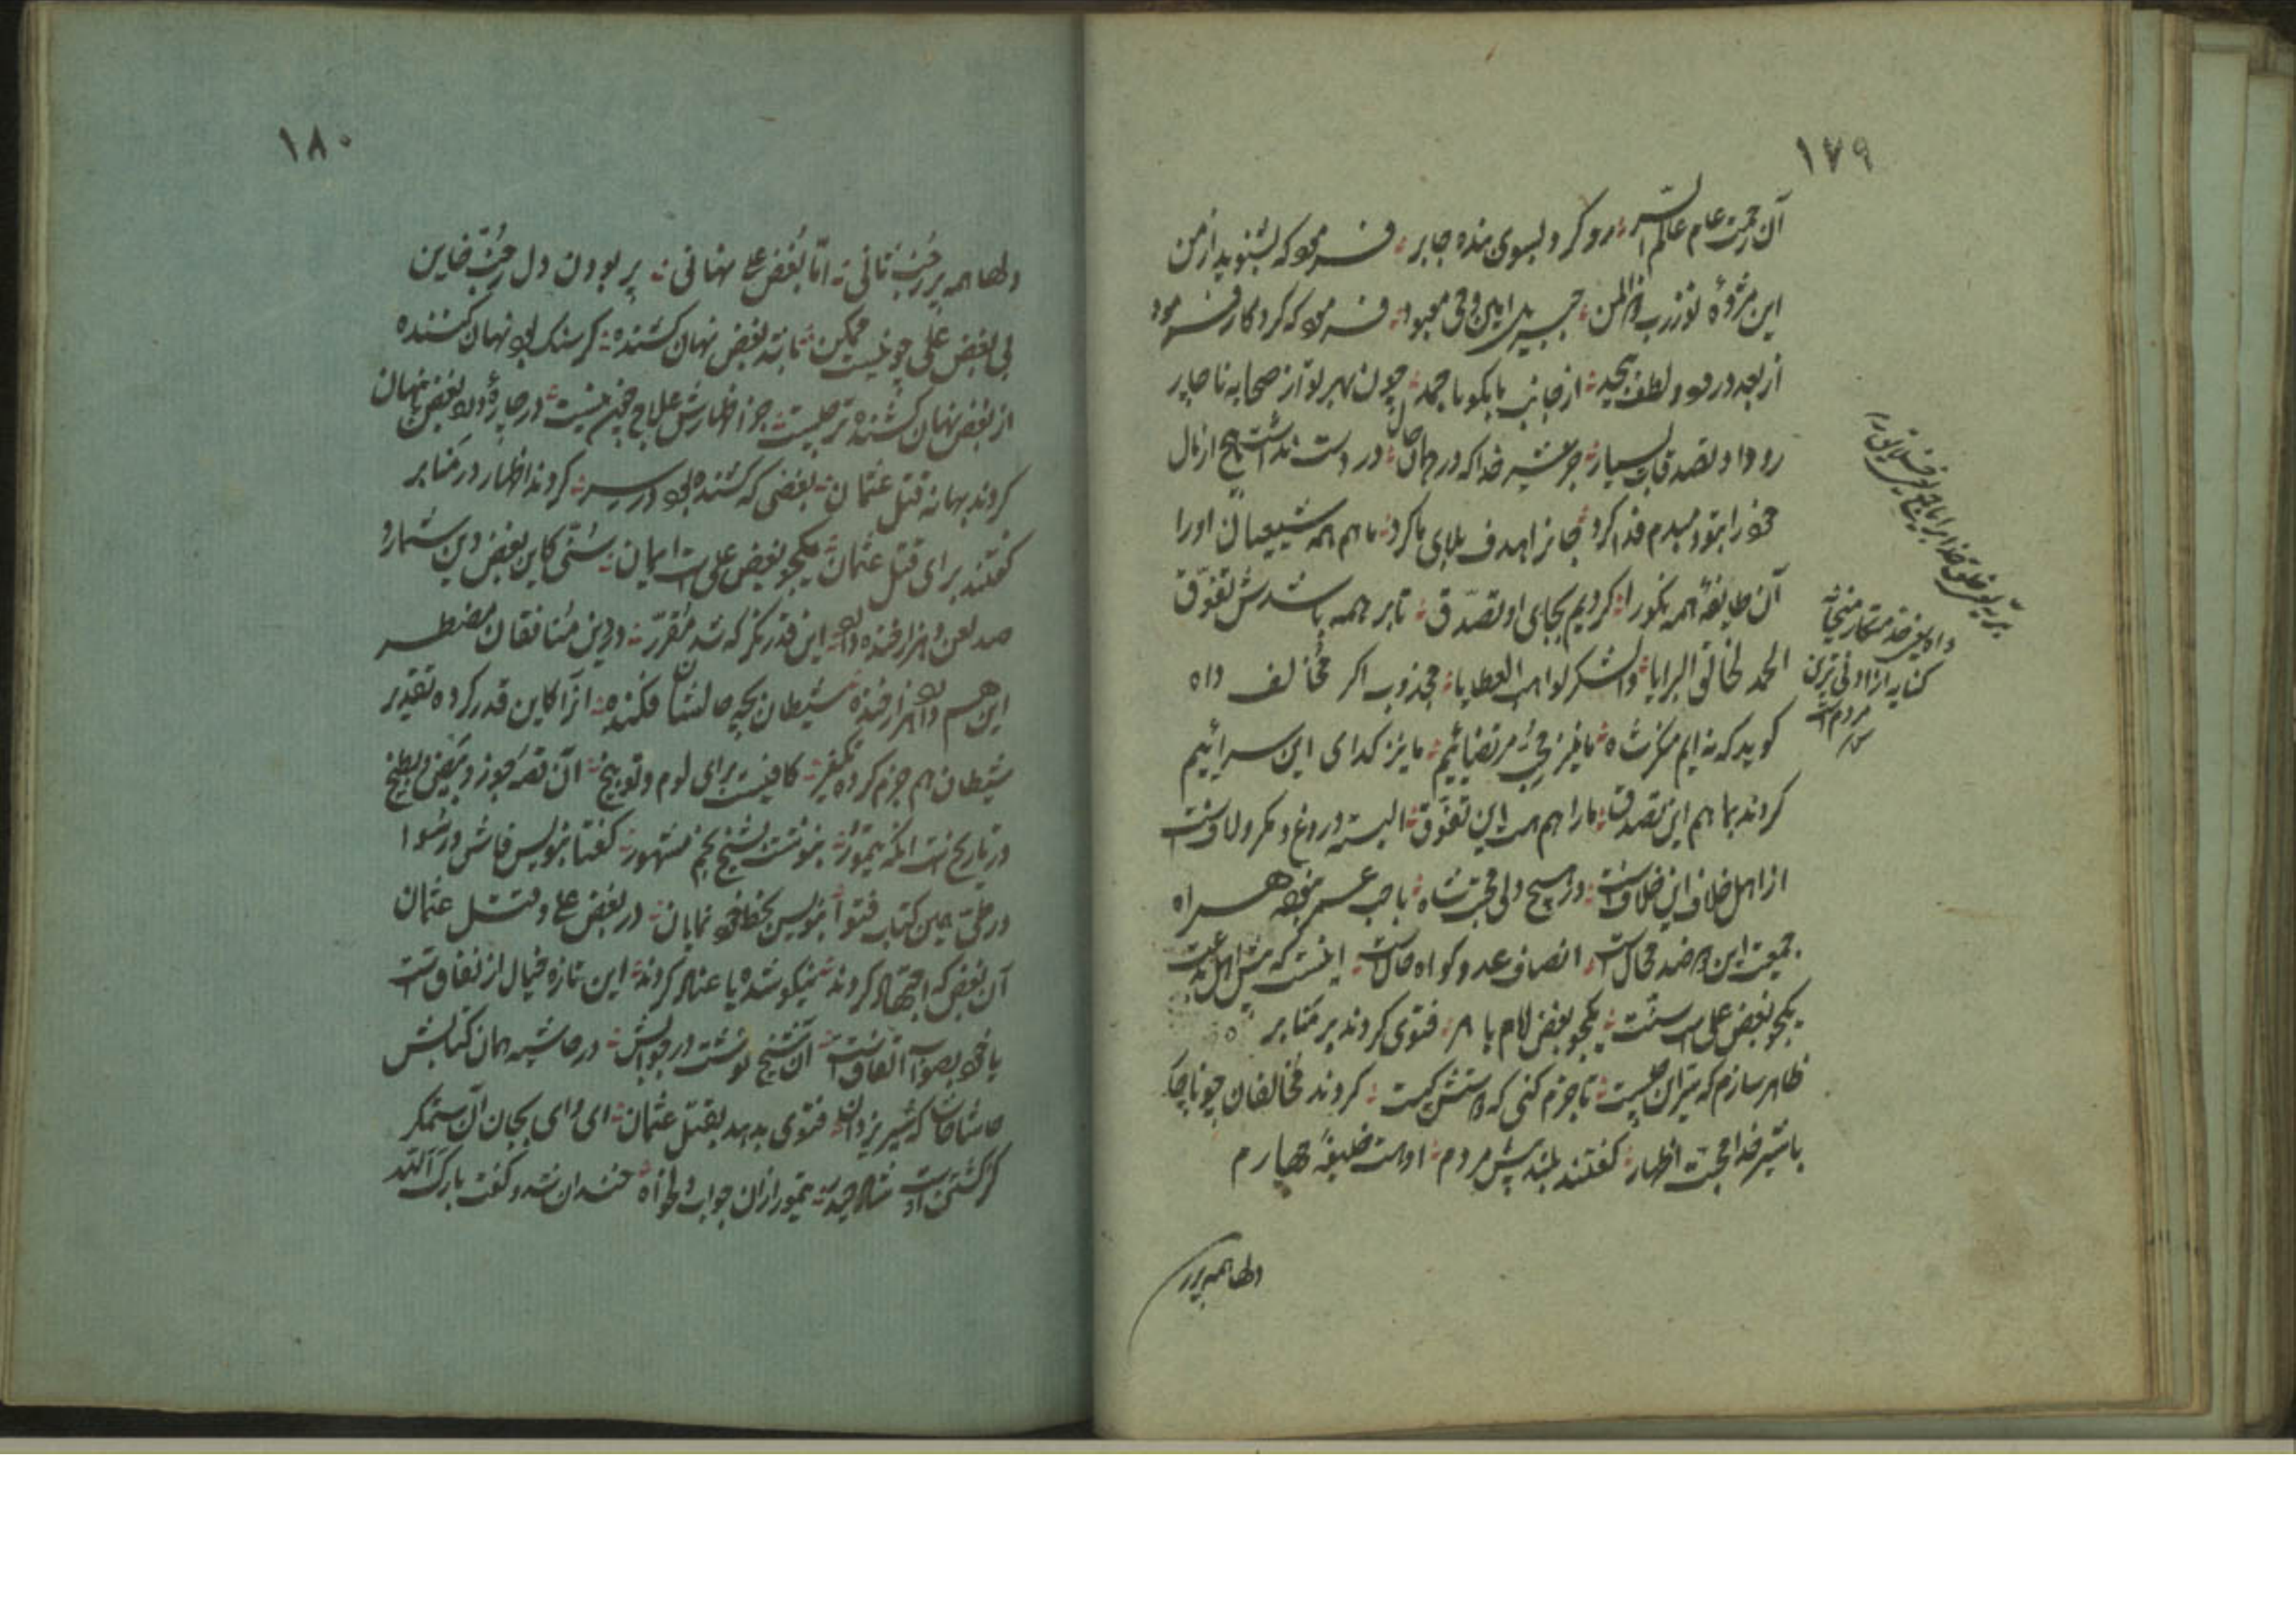 ١٧٩
آن رحمت عام عالم است رو کرد بسوی بنده جابر فرمود که بشنوید از من
این مژدهٔ نوز رب ذالمن جبریل امین وحی معبود فرمود که کردکار فرمود
از بعد درود و لطف بیحد از جانب ما بکو با حمد چون بهر تو از صحابه ناچار
رو داد تصدقات بسیار جز شیر خدا که در همان حال در دست نداشت هیچ از مال
خود را بتو دمبدم فدا کرد جانرا هدف بلای ما کرد ما هم همه شیعیان او را
آن طایفهٔ همه نکو را کردیم بجای او تصدّق تا بر همه باشدش تفوّق
الحمد لخالق البرایا والشکر لواهب العطایا مجذوب اکر مخالف داه
کوید که نه ایم منکر شاه ما نیز محب مرتضائیم ما نیز کدای این سرائیم
کردند بما هم این تصدق ما را هم هست این تفوّق البته دروغ و مکر و لافست
از اهل خلاف این خلافست در هیچ دلی محبت شاه با حب عمر نبوده همراه
جمعیت این دو ضد محالست انصاف عدو کواه حالست اینست که پیش اهل بدعت
یکجو بغض علی است سنت یکجو بغض امام با فتوی کردند بر منابر
ظاهر سازم که سرّ این چیست تا جزم کنی که راستش کیست کردند مخالفان چو ناچار
با شیر خدا محبت اظهار کفتند بلند پیش مردم اوست خلیفهٔ چهارم
دلها همه پر
داه یعنی
کنایه از ادنی ترین
مردم است
١٨٠
دلها همه پر ز حبّ ثانی امّا بغض علی نهانی پر بودن دل ز حبّ خاین
بی بغض علی چو نیست ممکن تا بد بغض نهان کشنده کر سنک بود نهان کشنده
از بغض نهان کشنده تر چیست جز اظهارش علاج چون نیست در چارهٔ درد بغض پنهان
کردند بهانه قتل عثمان بغضی که کشنده بود در سر کردند اظهار در منابر
کفتند برای قتل عثمان یکجو بغض علی است ایمان سنّی کاین بغض دین شمارد
صد لعن و هزار خنده دارد این قدر نکر که شد مقرّر در دین منافقان مضطر
این هم دارد هزار خنده شیطان بچه حالشان فکنده آنرا کاین قدر کرده تقدیر
شیطان هم جزم کرده تکفیر کافیست برای لوم و توبیخ آن قصهٔ جوز و بیض و بطیخ
در تاریخ است آنکه تیمور بنوشت بشیخ نجم مشهور کفتا بنویس فاش و رسوا
در حق همین کتاب فتوا بنویس بخط خود نمایان در بغض علی و قتل عثمان
آن بغض که اجتهاد کردند نیکو شده یا عناد کردند این تازه خیال از نفاق است
یا خود بصواب اتفاقست آن شیخ نوشت در جوابش در حاشیه همان کتابش
حاشا حاشا که شیر یزدان فتوی بدهد بقتل عثمان ای وای بجان آن ستمکر
کز کشتن اوست شاد حیدر تیمور از آن جواب دلخواه خندان شد و کفت بارک الله